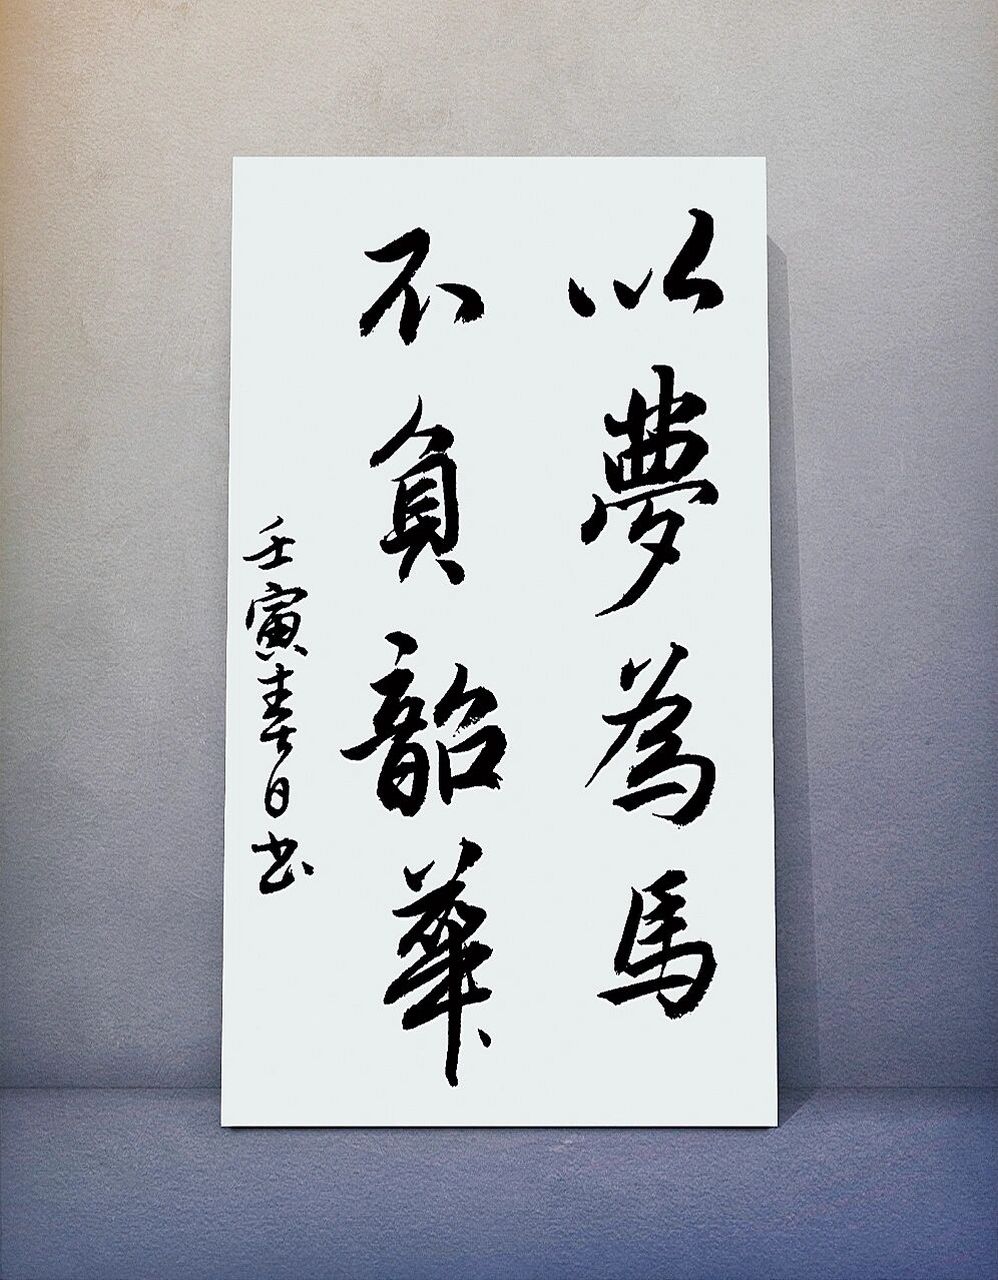 以夢為馬
不負韶華
壬寅春日书